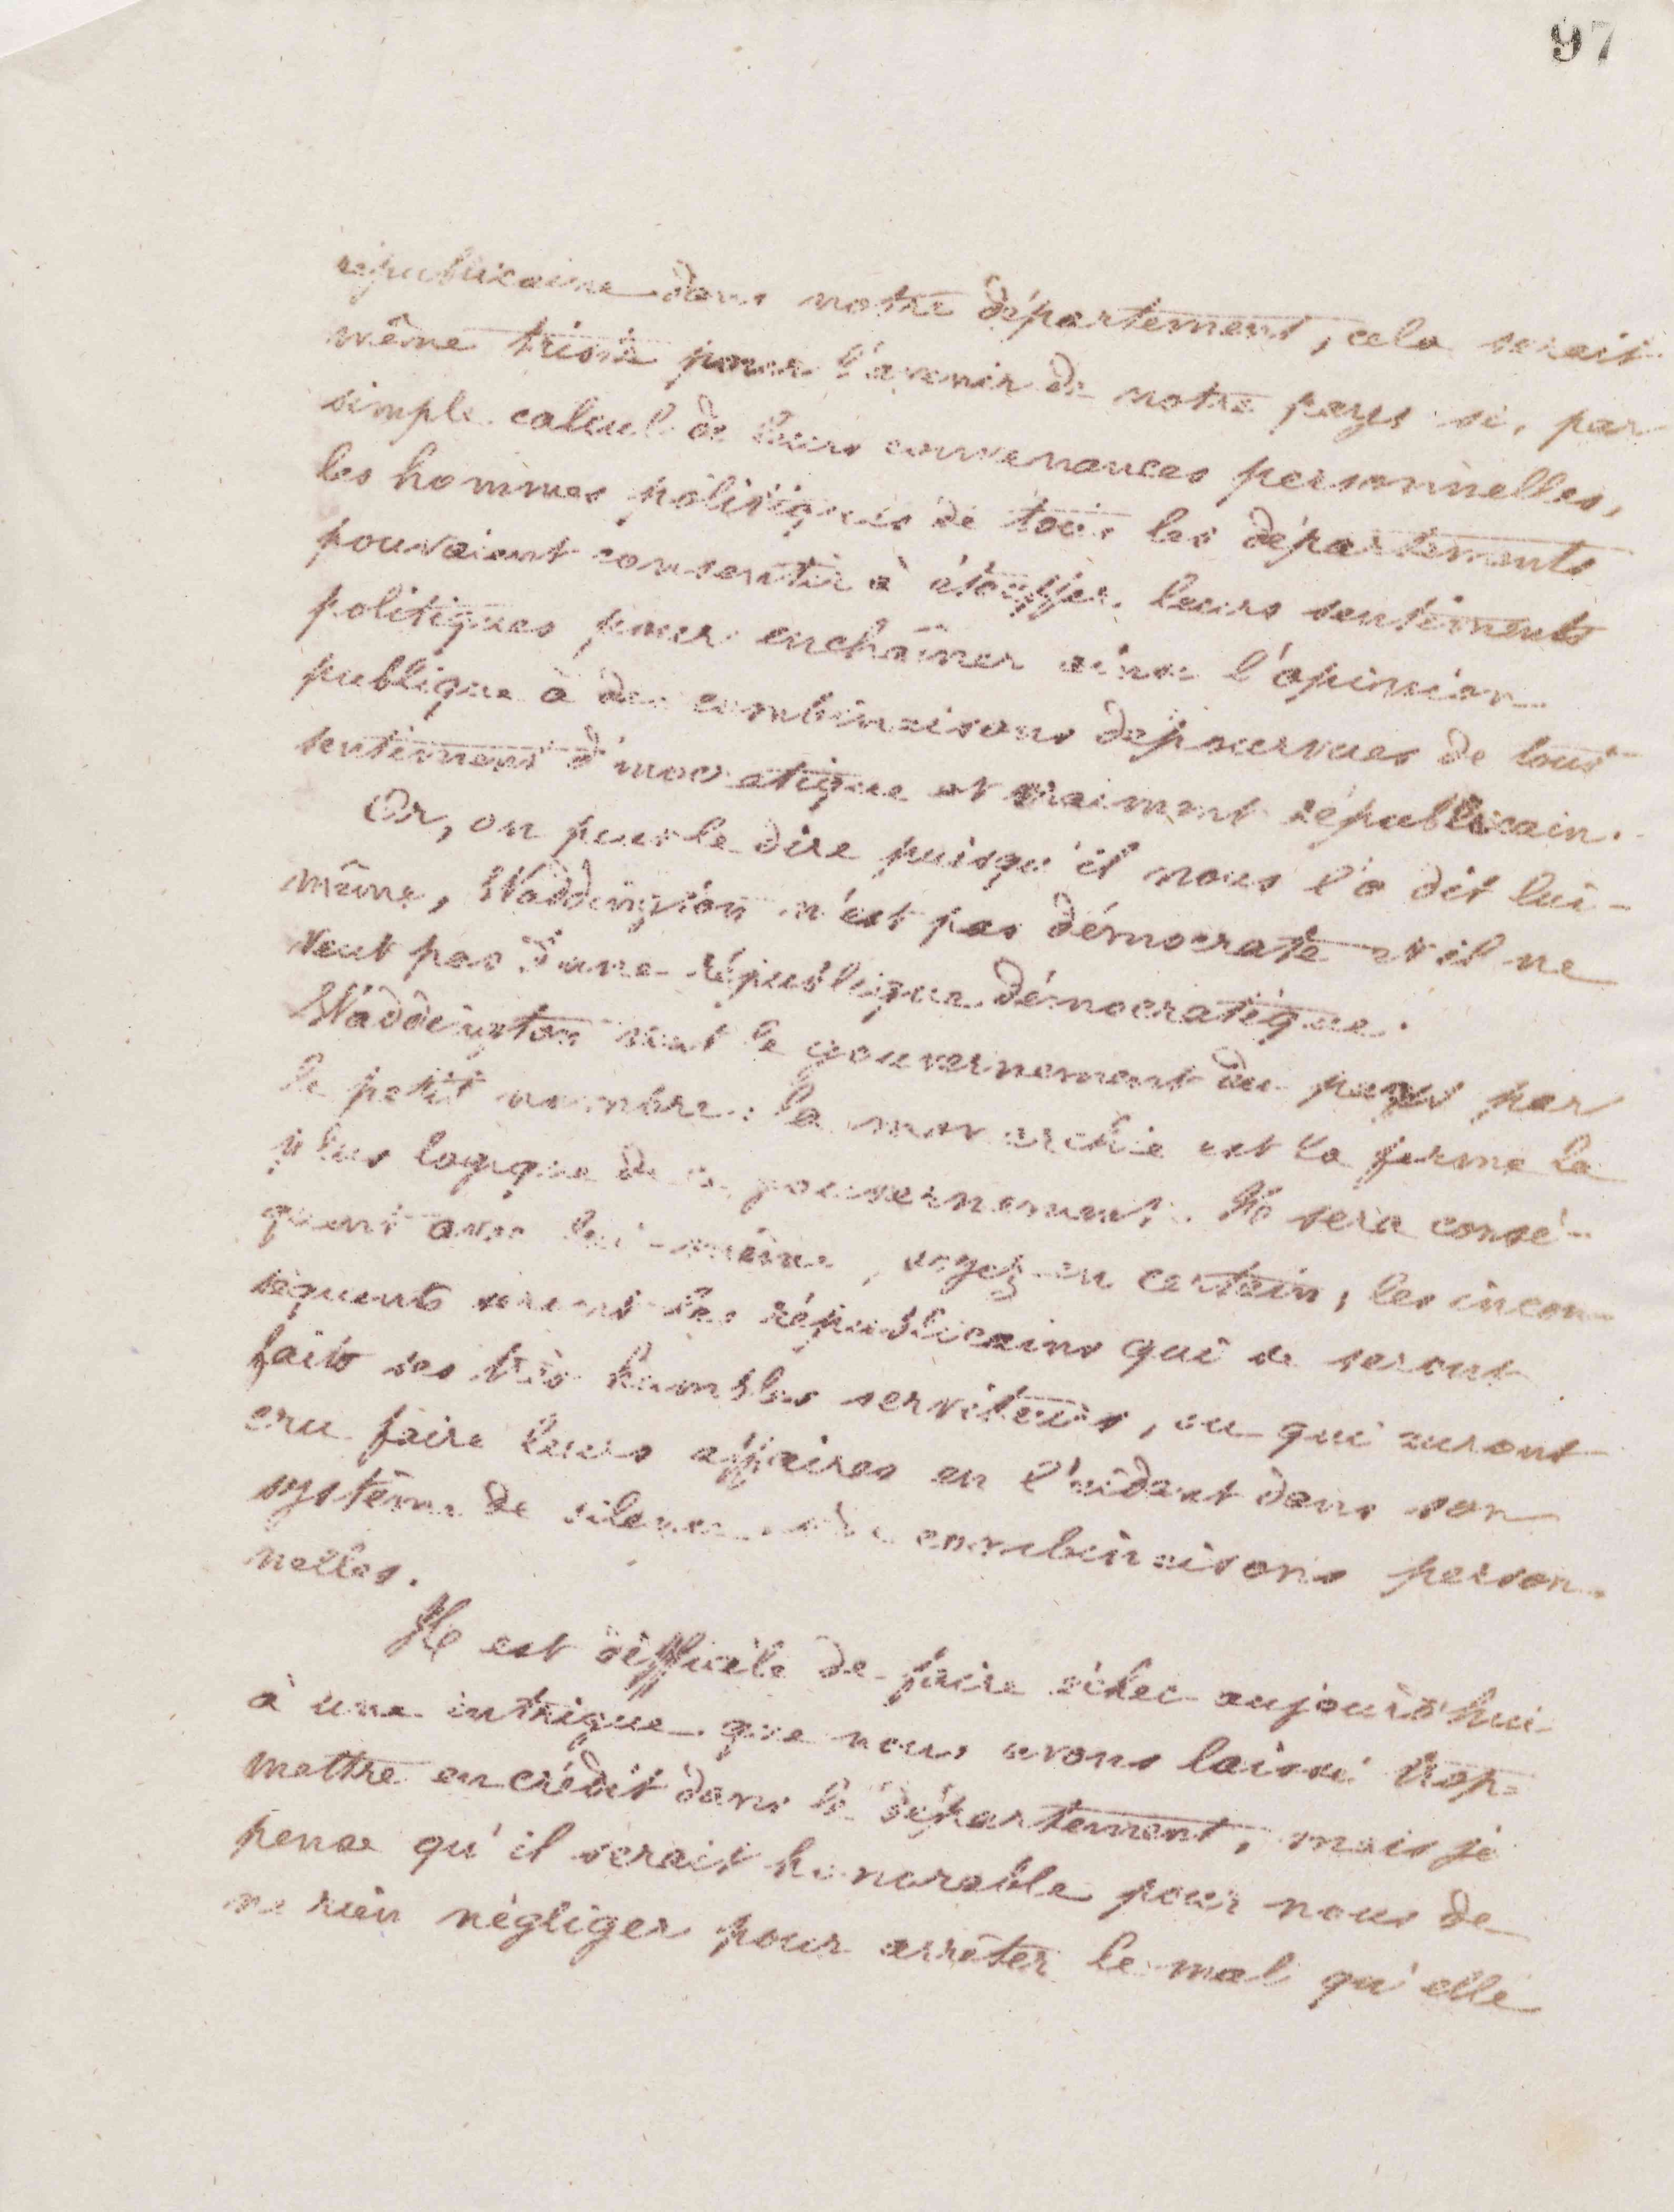 97
républicaine dans notre département, cela serait
même triste pour l'avenir de notre pays si, par
simple calcul de leurs convenances personnelles,
les hommes politiques de tous les départements
pouvaient consentir à étouffer leurs sentiments
politiques pour enchaîner ainsi l'opinion
publique à des combinaisons dépourvues de tout
sentiment démocratique et vraiment républicain.
Or, on peut le dire puisqu'il nous l'a dit lui-
même, Waddington n'est pas démocrate et il ne
veut pas d'une république démocratique.
Waddington veut le gouvernement du pays par
le petit nombre : la monarchie est la forme la
plus logique de ce gouvernement. Il sera consé-
quent avec lui-même, soyez-en certain, les incon-
séquents seront les républicains qui se seront
faits ses très humbles serviteurs, ou qui auront
cru faire leurs affaires en l'aidant dans son
système de silence et de combinaisons person-
nelles.
Il est difficile de faire échec aujourd'hui
à une intrigue que nous avons laissé trop
mettre en crédit dans le département, mais je
pense qu'il serait honorable pour nous de
ne rien négliger pour arrêter le mal qu'elle